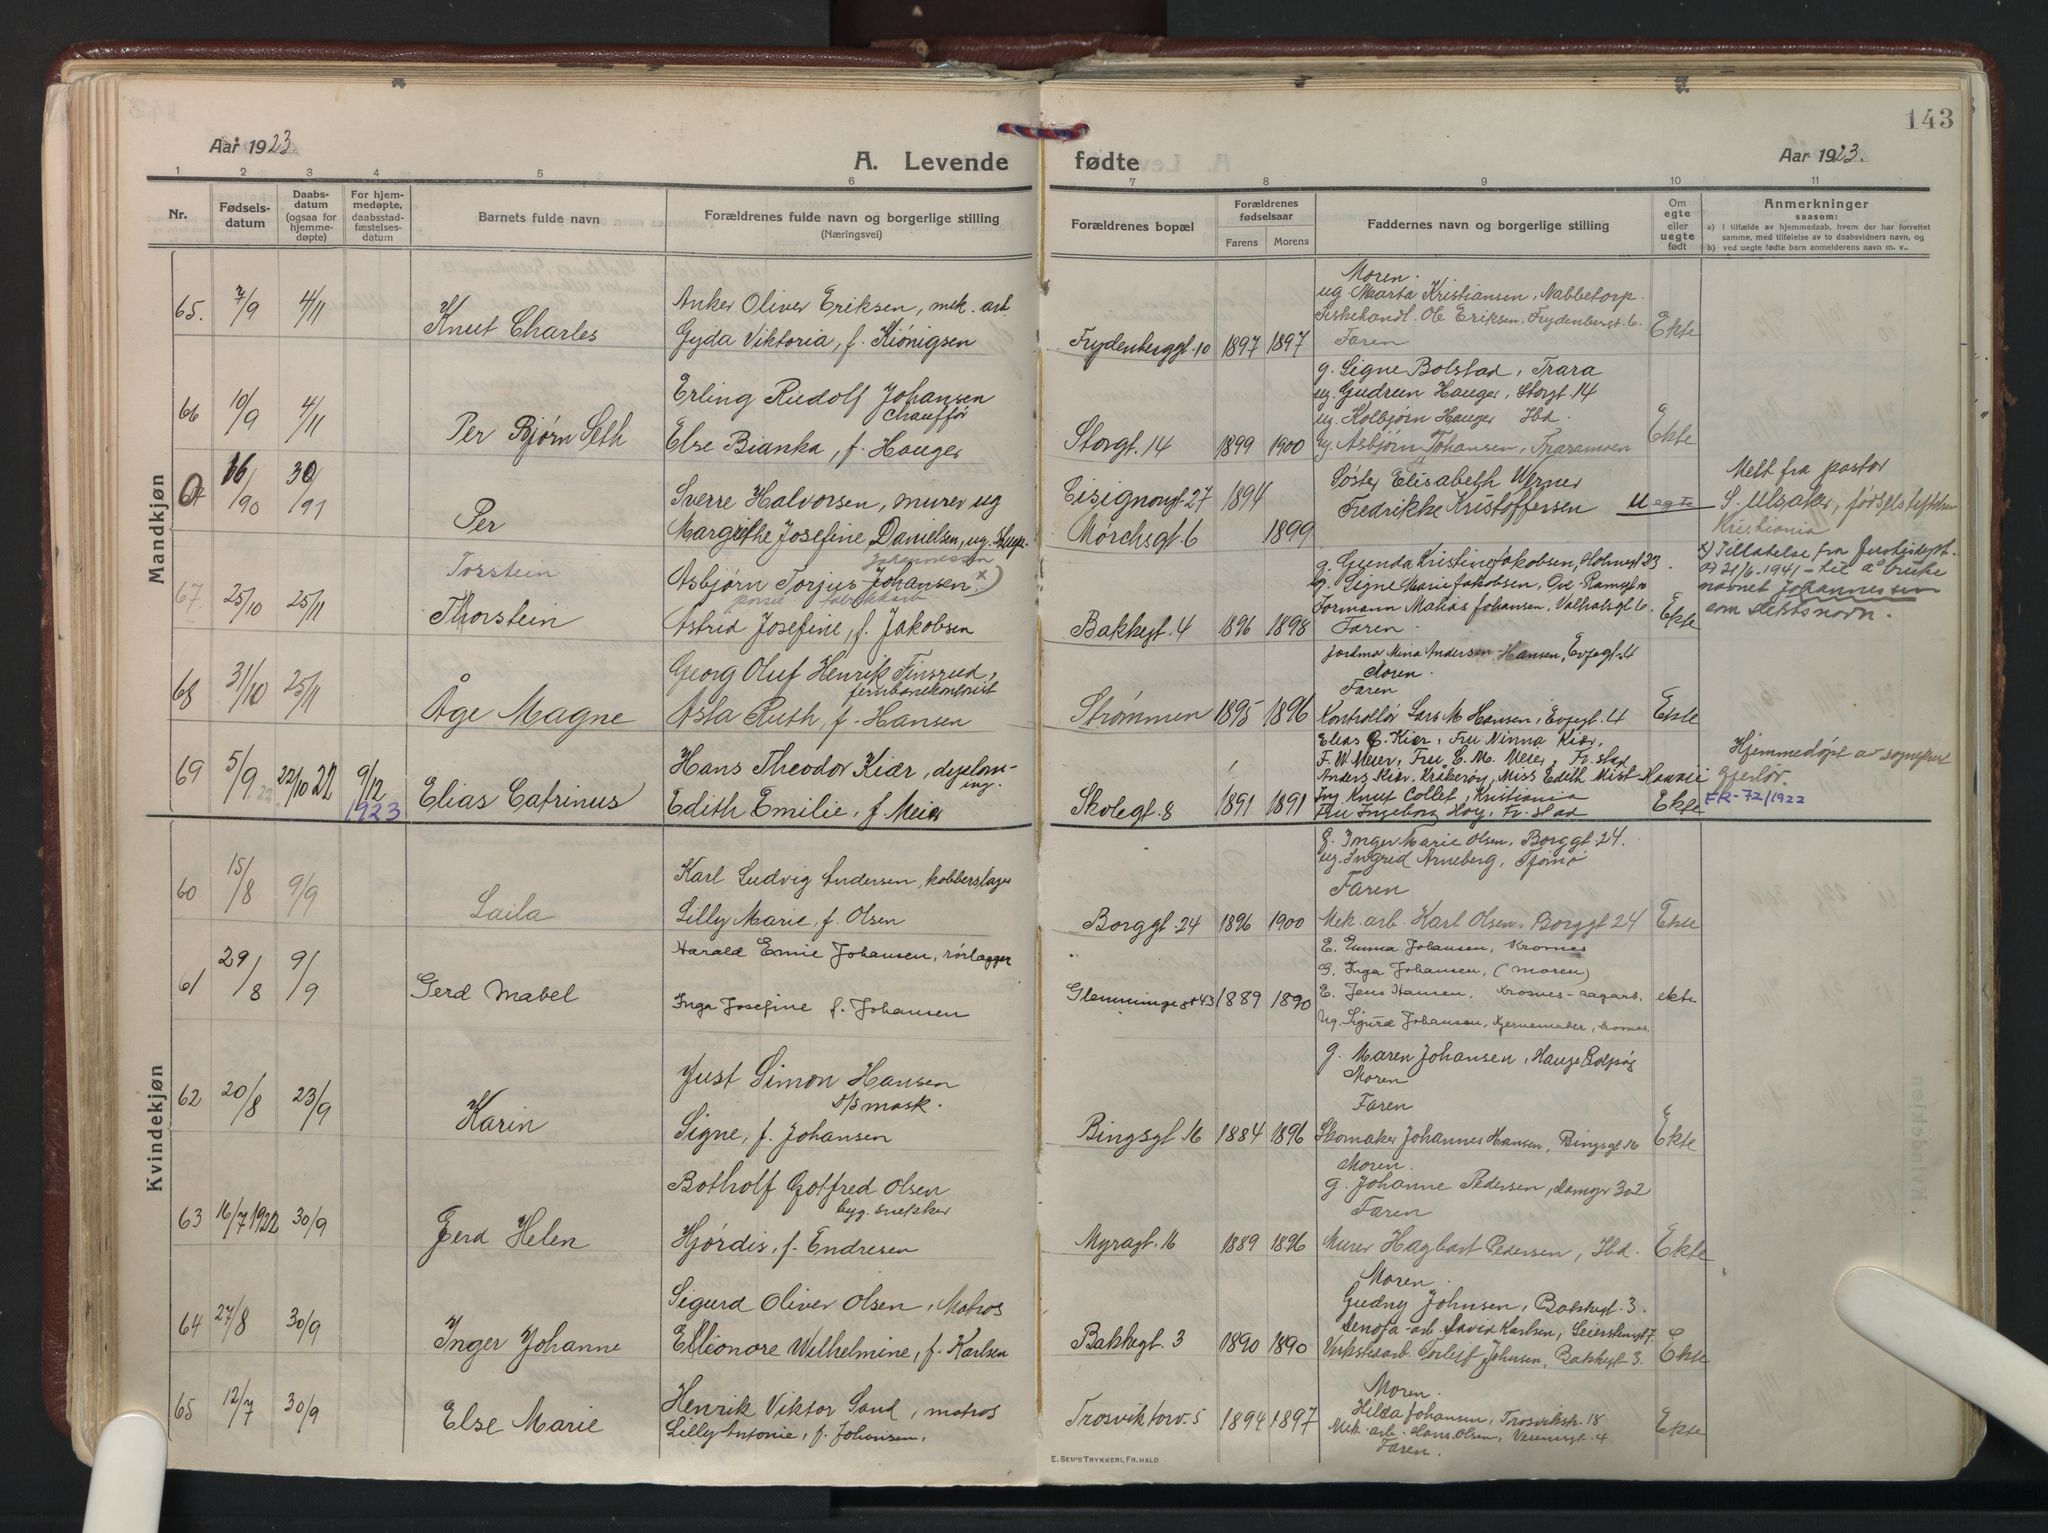 143
Aar 1923.
A. Levende
fødte
Aar 1923.
1 2 3 4 5 6 7 8 9 10 11
Nr.
Fødsels-
datum
Daabs-
datum
(ogsaa for
hjemme-
døpte)
For hjem-
medøpte,
daabsstad-
fæstelses-
datum
Barnets fulde navn
Forældrenes fulde navn og borgerlige stilling
(Næringsvei)
Forældrenes bopæl
Forældrenes
fødselsaar
Farens
Morens
Faddernes navn og borgerlige stilling
Om
egte
eller
uegte
født
Anmerkninger
saasom:
a) I tilfælde av hjemmedaab, hvem der har forrettet
samme, med tilføielse av to daabsvidners navn, og
b) ved uegte fødte barn anmelderens navn m. v..
Mandkjøn
65. 7/9 4/11 Knut Charles
Anker Oliver Eriksen, mek. arb.
Gyda Viktoria, f. Kiönigsen
Frydenberggt. 10 1897 1897
Moren.
ug. Marta Kristiansen, Nabbetorp.
Fiskehandl. Ole Eriksen, Frydenbergt. 6.
Faren
Ekte
66 10/9 4/11 Per Bjørn Seth
Erling Rudolf Johansen
chauffør
Else Bianka, f. Hauger
Storgt. 14 1899 1900
g. Signe Bolstad, Trara
ug. Gudrun Hauger, Storgt. 14
ug. Kolbjørn Hauger Ibd.
ug. Asbjørn Johansen, Traramoen
Ekte
0 16/90 30/91 Per
Sverre Halvorsen, murer ug
Margrethe Josefine Danielsen, ug.
27 1894
Mørchsgt. 6 1899
Søster Elisabeth Werner
Fredrikke Kristoffersen
Uegte
Melt fra pastor
S. Ulsaker, fødselsstiftelsen
Kristiania
67. 25/10 25/11 Torstein
Thorstein
Johannessen
Asbjørn Torjus Johansen x)
Astrid Josefine, f. Jakobsen
Bakkegt. 4 1896 1898
g. Gunda Kristine Jakobsen, Holmegt 23
ug. Signe Marie Jakobsen,
Formann Matias Johansen, Valhalsgt 6.
Faren.
Ekte
x) Tillatelse fra Justisdept.
av 21/6. 1941 – til å bruke
navnet Johannessen
som slektsnavn.
68 31/10 25/11 Åge Magne
Georg Oluf Henrik Finsrud,
jernbanekontorist
Asta Ruth, f. Hansen
Strømmen 1895 1896
Jordmor Mina Andersen Hansen, Evjegt. 4
Moren.
Faren
Kontrollør Lars M Hansen, Evjegt. 4
Ekte
69 5/9 22 22/10 22 9/12 1923 Elias Catrinus
Hans Theodor Kiær, diplom-
ing.
Edith Emilie, f. Meier
Skolegt. 8 1891 1891
Elias C. Kiær, Fru Ninna Kiær,
F. W Meier, Fru E. M. Meier, Fr. stad
Anders Kiær, Kråkerøy, Miss Edith Mist - Hawaii
Ing. Knut Collet, Kristiania
Fru Ingeborg Høy, Fr. stad
Ekte
Hjemmedøpt av sogneprest
Gjerløv.
FR-72/1922
Kvindekjøn
60 15/8 9/9 Laila
Karl Ludvig Andersen, kobberslager
Lilly Marie, f. Olsen
Borggt. 24 1896 1900
g. Inger Marie Olsen, Borggt. 24.
ug. Ingrid Arneberg, Tjømø
Faren
Mek. arb. Karl Olsen, Borggt 24
Ekte
61 29/8 9/9 Gerd Mabel
Harald Emil Johansen, rørlægger
Inga Josefine f. Johansen
Glemmingegt 43 1889 1890
E. Emma Johansen, Krosnes
G. Inga Johansen, (moren)
E. Jens Hansen, Krosnes - sagarb.
Ug. Sigurd Johansen, Kjernemaker, Krosnes.
ekte
62 20/8 23/9 Karin
Just Simon Hansen
d/s mask.
Signe, f. Johansen
Bingsgt. 16 1884 1896
g. Maren Johansen, Hauge Rolvsøy
Moren
Faren
Skomaker Johannes Hansen, Bingsgt 16
Ekte
63 16/7 1922 30/9 Gerd Helen
Botholf Gotfred Olsen
byg. snekker
Hjørdis, f. Endresen
Myragt. 16 1889 1896
Moren.
g. Johanne Pedersen, Damgr 302
Faren
Murer Hagbart Pedersen, Ibd.
Ekte
64 27/8 30/9 Inger Johanne
Sigurd Oliver Olsen, Matros
Elleonore Wilhelmine, f. Karlsen
Bakkegt. 3 1890 1890
Moren.
Gudny Johnsen, Bakkegt. 3.
Denofa-arb. David Karlsen, Leierstengt 7
Verkstedarb. Torleif Johnsen, Bakkegt 3.
Ekte
65 12/7 30/9 Else Marie
Henrik Viktor Sand, matros
Lilly Antonie, f. Johansen.
Trosviktorv. 5 1894 1897
Moren.
Hilda Johansen, Trosvikstr. 18
Mek. arb. Hans Olsen, Verensgt. 4
Faren.
Ekte
E. SEM'S TRYKKERI, FR.HALD